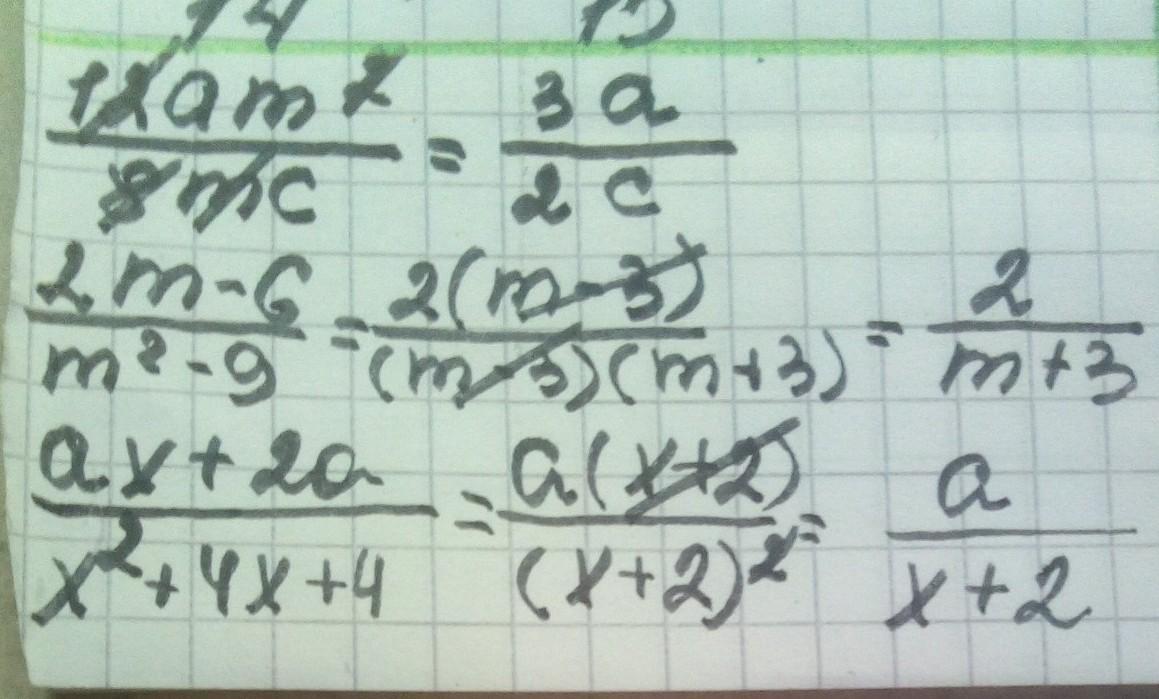 12am² / 8mc = 3a / 2c
2m-6 / m²-9 = 2(m-3) / (m-3)(m+3) = 2 / m+3
ax+2a / x²+4x+4 = a(x+2) / (x+2)² = a / x+2